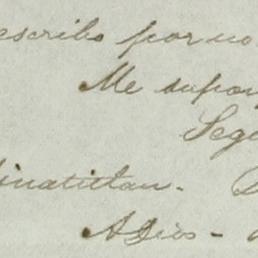 escribo por no
Me supon
Segu
inatitlan.
Adios -